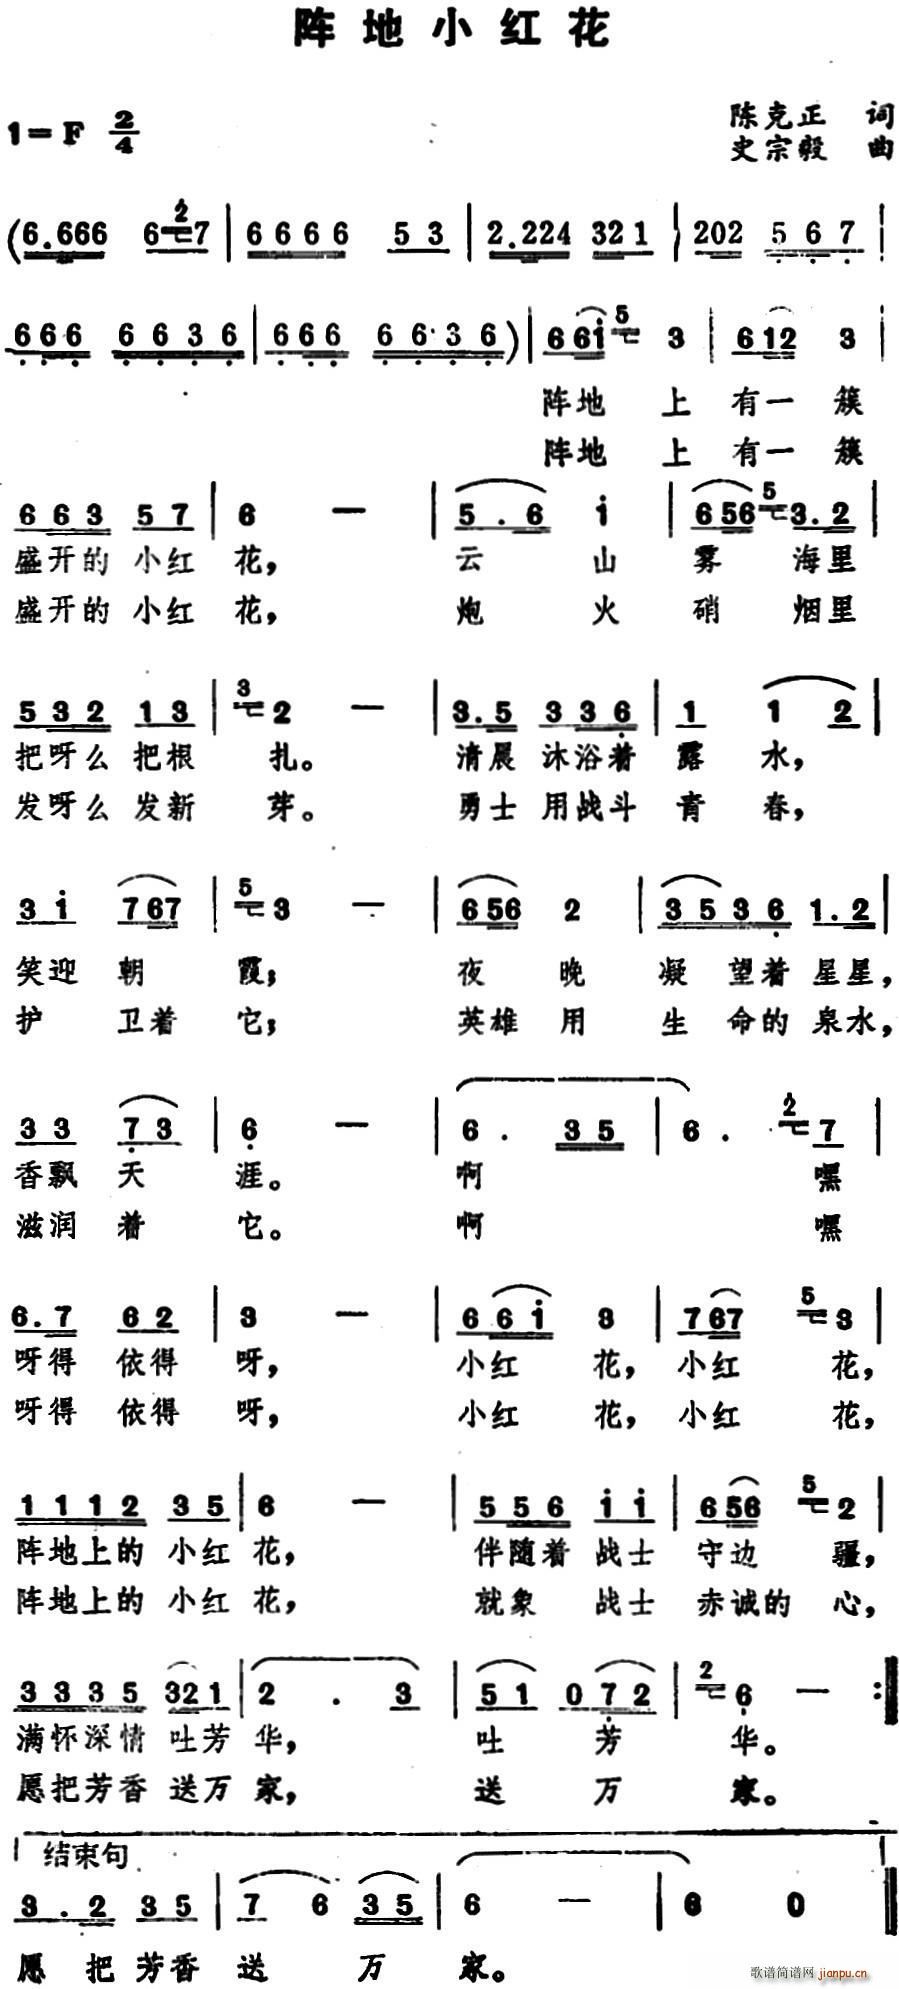 阵地小红花
1=F 2/4
陈克正 词
史宗毅 曲
(6.666 6 2 7 | 6666 53 | 2.224 321 | 202 567 |
666 6636 | 666 6636) | 66i 5 3 | 612 3 |
阵地 上 有一 簇
阵地 上 有一 簇
663 57 | 6 — | 5.6 i | 656 5 3.2 |
盛开的 小红 花， 云 山 雾 海里
盛开的 小红 花， 炮 火 硝 烟里
532 13 | 3 2 — | 3.5 336 | 1 1 2 |
把呀么 把根 扎。 清晨 沐浴着 露 水，
发呀么 发新 芽。 勇士 用战斗 青 春，
3i 767 | 5 3 — | 656 2 | 3536 1.2 |
笑迎 朝 霞； 夜 晚 凝 望着 星星，
护 卫着 它； 英雄 用 生 命的 泉水，
33 73 | 6 — | 6. 35 | 6. 2 7 |
香飘 天 涯。 啊 嘿
滋润 着 它。 啊 嘿
6.7 62 | 3 — | 66i 3 | 767 5 3 |
呀得 依得 呀， 小红 花，小红 花，
呀得 依得 呀， 小红 花，小红 花，
1112 35 | 6 — | 556 ii | 656 5 2 |
阵地上的 小红 花， 伴随着 战士 守边 疆，
阵地上的 小红 花， 就象 战士 赤诚的 心，
3335 321 | 2 . 3 | 51 072 | 2 6 — :|
满怀深情 吐芳 华， 吐 芳 华。
愿把芳香 送万 家， 送 万 家。
结束句
3.2 35 | 7 6 35 | 6 — | 6 0 ‖
愿 把 芳香 送 万 家。
歌谱简谱网 jianpu.cn